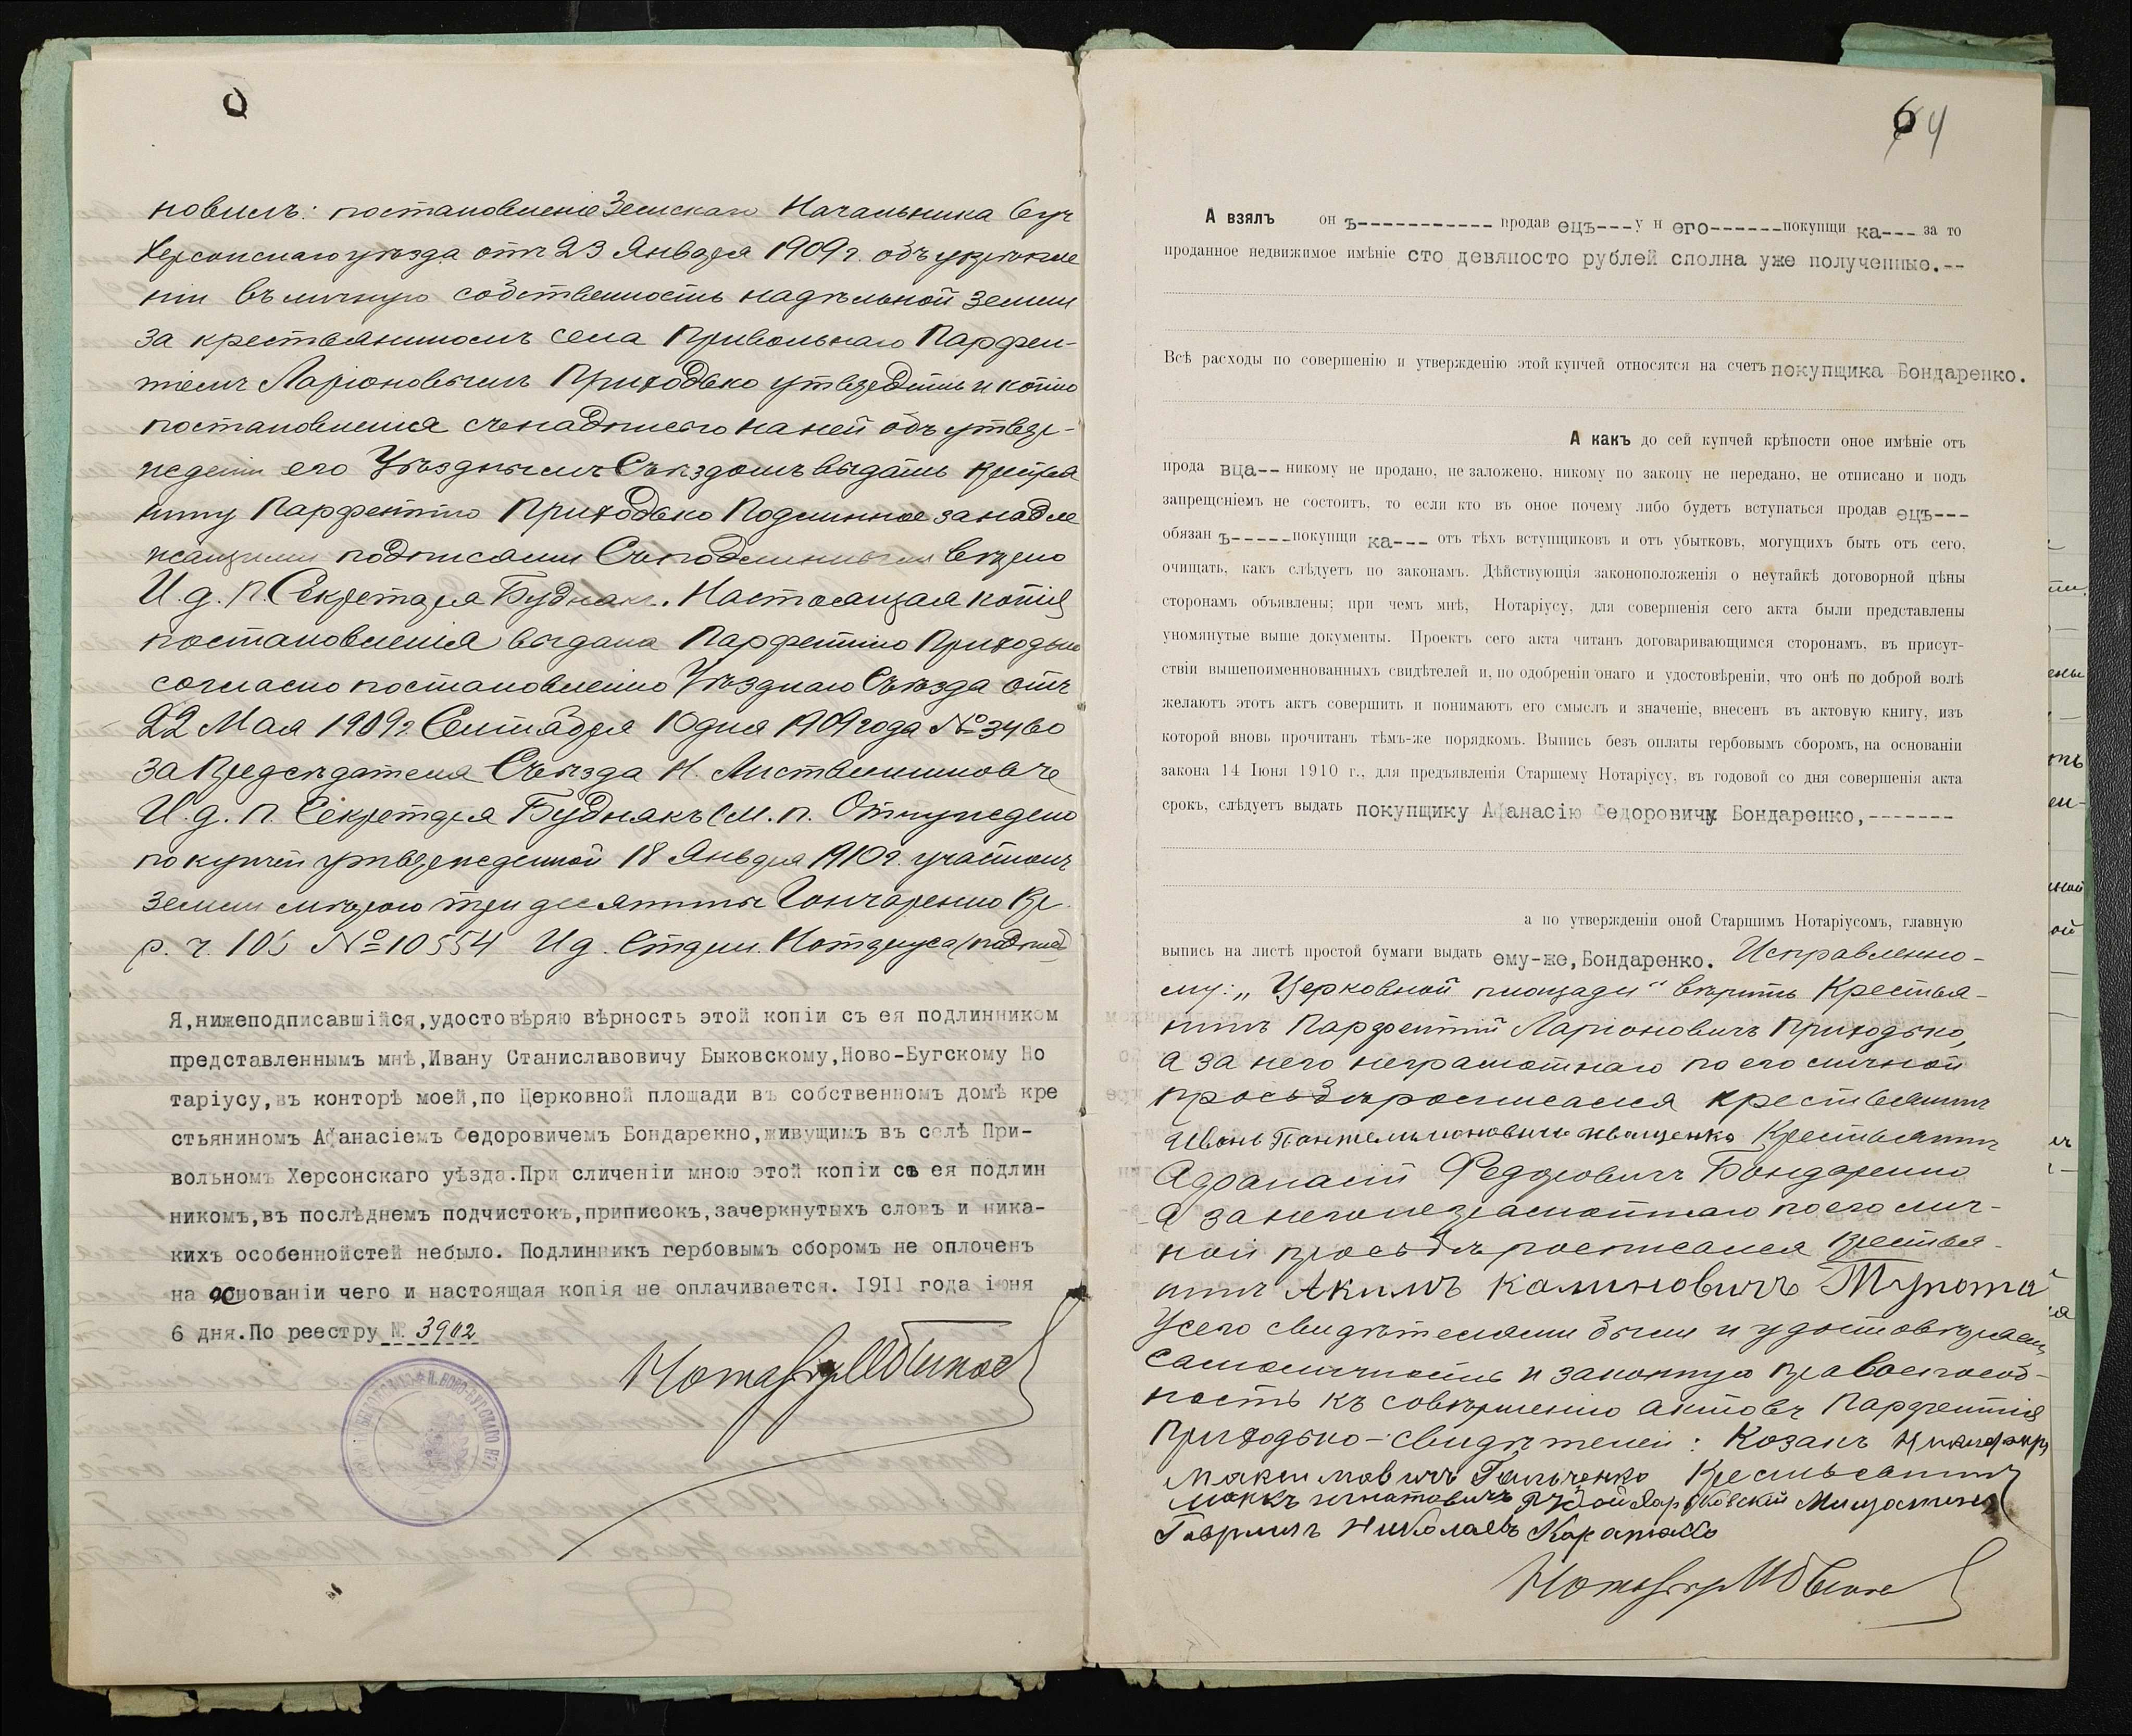 новилъ: постановленіе Земскаго Начальника 6 уч
Херсонскаго уѣзда отъ 23 Января 1909 г. объ укрѣпле
ніи въ личную собственность надѣльной земли
за крестьяниномъ села Привольнаго Парфен-
тіемъ Ларіоновымъ Приходько утвердить и копію
постановленія съ надписью на ней объ утвер-
жденіи его Уѣзднымъ Съѣздомъ выдать крестья
нину Парфентію Приходько Подлинное за надле
жащими подписями Съ подлиннымъ вѣрно
И. д. п. Секретаря Буднякъ. Настоящая копія
постановленія выдана Парфентію Приходько
согласно постановленію Уѣзднаго Съѣзда отъ
22 Мая 1909 г. Сентября 10 дня 1909 года № 3460
За Предсѣдателя Съѣзда Н.
И. д. п. Секретаря Буднякъ (М. п. Отчуждено
по купчей утвержденной 18 Января 1910 г. участокъ
земли мѣрою три десятины Гончаренко Кр.
р. ч. 105 № 10554 И д. Старш. Нотаріуса (подпись)
Я,нижеподписавшійся,удостовѣряю вѣрность этой копіи съ ея подлинником
представленнымъ мнѣ,Ивану Станиславовичу Быковскому,Ново-Бугскому Но
таріусу,въ конторѣ моей,по Церковной площади въ собственномъ домѣ кре
стьянином Афанасіемъ Федоровичемъ Бондарекно,живущимъ въ селѣ При-
вольномъ Херсонскаго уѣзда.При сличеніи мною этой копіи съ ея подлин
никомъ,въ послѣднемъ подчистокъ,приписокъ,зачеркнутыхъ словъ и ника-
кихъ особеннойстей небыло. Подлинникъ гербовымъ сборомъ не оплоченъ
на основаніи чего и настоящая копія не оплачивается. 1911 года іюня
6 дня.По реестру № 3902
Нотаріусъ
6 4
А взялъ он ъ----------- продав ецъ---у н его------покупщи ка--- за то
проданное недвижимое имѣніе сто девяносто рублей сполна уже полученные.--
Всѣ расходы по совершенію и утвержденію этой купчей относятся на счетъ покупщика Бондаренко.
А какъ до сей купчей крѣпости оное имѣніе отъ
прода вца-- никому не продано, не заложено, никому по закону не передано, не отписано и подъ
запрещеніемъ не состоитъ, то если кто въ оное почему либо будетъ вступаться продав ецъ---
обязан ъ-----покупщи ка--- отъ тѣхъ вступщиковъ и отъ убытковъ, могущихъ быть отъ сего,
очищать, какъ слѣдуетъ по законамъ. Дѣйствующія законоположенія о неутайкѣ договорной цѣны
сторонамъ объявлены; при чемъ мнѣ, Нотаріусу, для совершенія сего акта были представлены
уномянутые выше документы. Проектъ сего акта читанъ договаривающимся сторонамъ, въ присут-
ствіи вышепоименнованныхъ свидѣтелей и, по одобреніи онаго и удостовѣреніи, что онѣ по доброй волѣ
желаютъ этотъ актъ совершить и понимаютъ его смыслъ и значеніе, внесенъ въ актовую книгу, изъ
которой вновь прочитанъ тѣмъ-же порядкомъ. Выпись безъ оплаты гербовымъ сборомъ, на основаніи
закона 14 Іюня 1910 г., для предъявленія Старшему Нотаріусу, въ годовой со дня совершенія акта
срокъ, слѣдуетъ выдать покупщику Афанасію Федоровичу Бондаренко,-------
а по утвержденіи оной Старшимъ Нотаріусомъ, главную
выпись на листѣ простой бумаги выдать ему-же,Бондаренко. Исправленно-
му: „Церковной площади" вѣрить Крестья-
нинъ Парфентій Ларіоновичъ Приходько,
а за него неграмотнаго по его личной
просьбѣ росписался крестьянинъ
Иванъ Пантелимоновичъ Иващенко Крестьянинъ
Афанасій Федоровичъ Бондаренко
а за него неграмотнаго по его лич-
ной просьбѣ росписался крестья-
нинъ Акимъ Калиновичъ
У сего свидѣтелями были и удостовѣряемъ
самоличность и законную правоспособ-
ность къ совершенію актовъ Парфентія
Приходько—свидѣтелей: Козакъ Никифоръ
Максимовичъ Крестьянинъ
Игнатовичъ Мещанинъ
Гаврилъ Николаевъ
Нотаріусъ